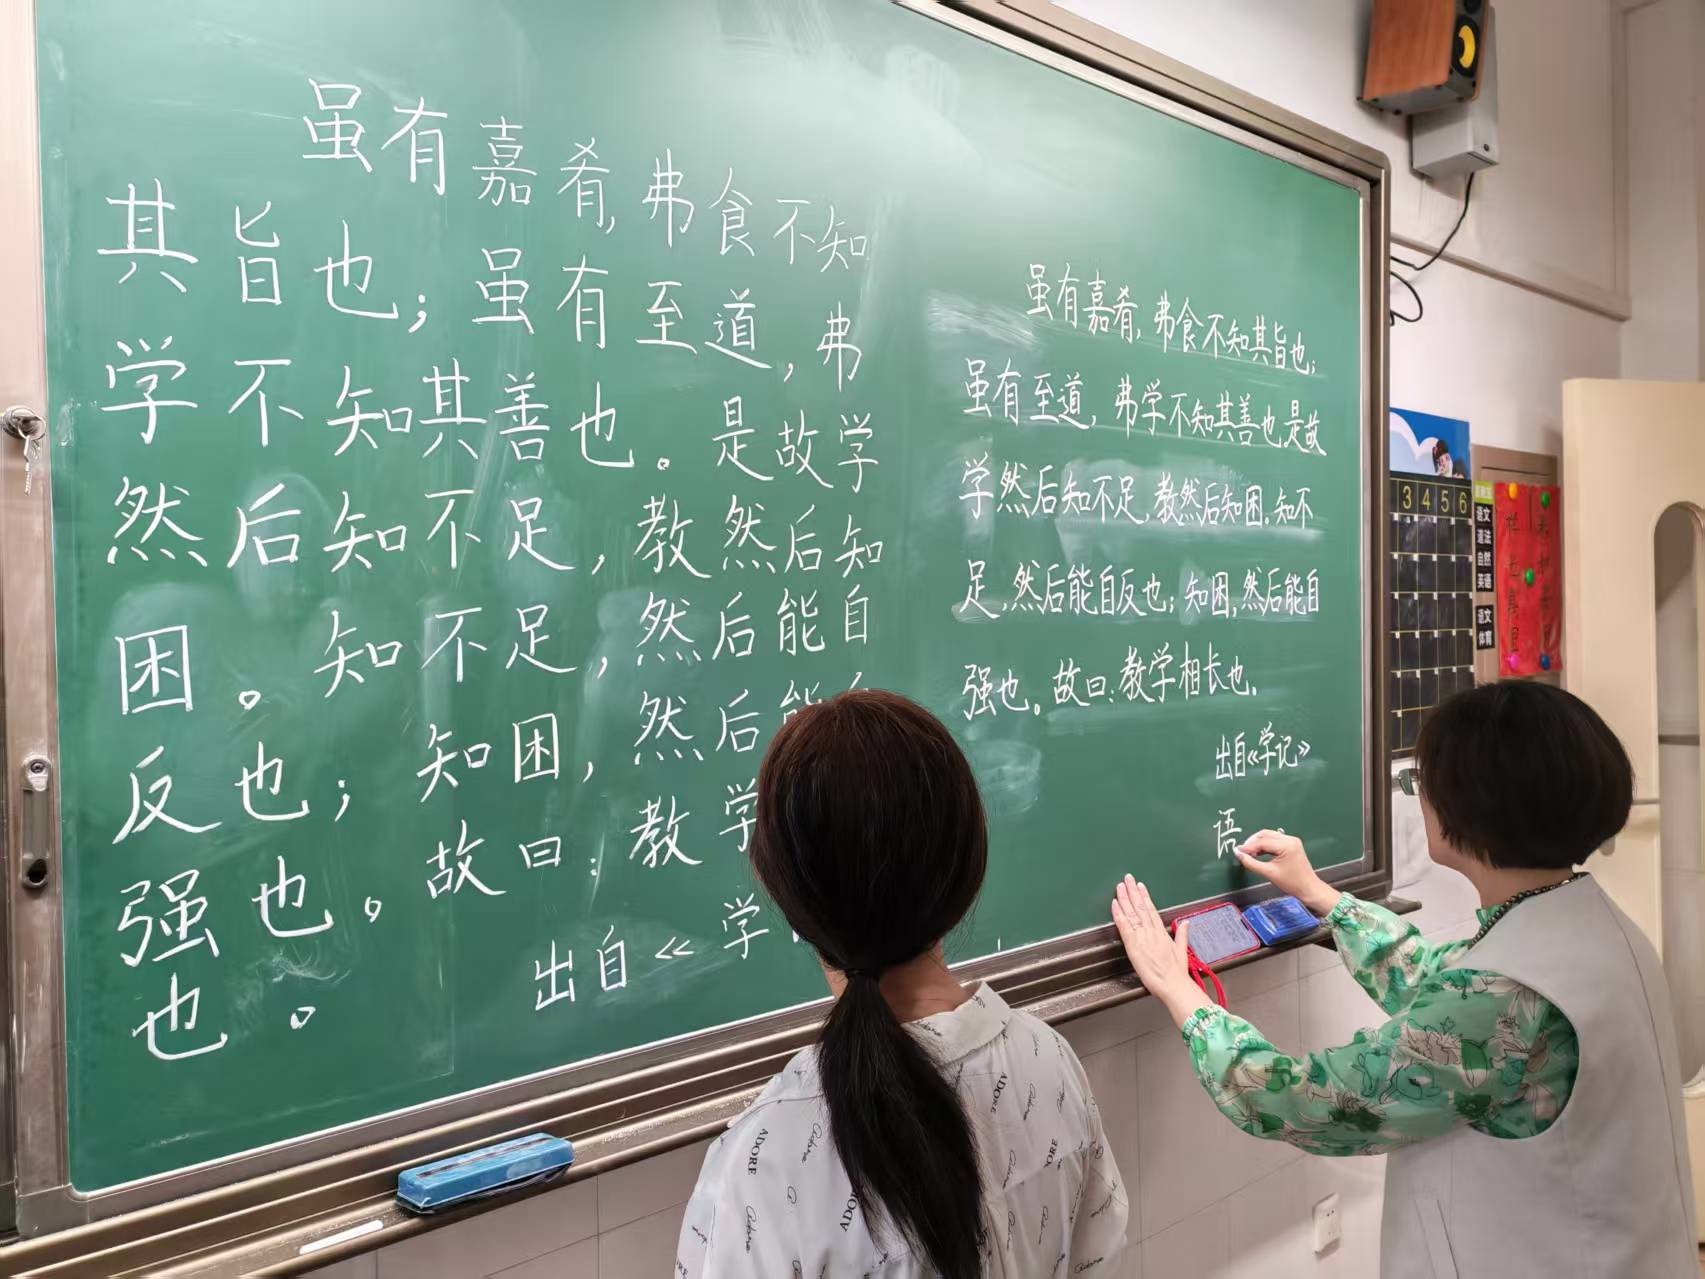 虽有嘉肴,弗食不知
其旨也;虽有至道,弗
学不知其善也。是故学
然后知不足,教然后知
困。知不足,然后能自
反也;知困,然后能
强也。故曰:教学
也。
出自《学
虽有嘉肴,弗食不知其旨也;
虽有至道,弗学不知其善也.是故
学然后知不足,教然后知困.知不
足,然后能自反也;知困,然后能自
强也。故曰:教学相长也.
出自《学记》
语
3 4 5 6
语文
道法
自然
英语
语文
体育
ADORE
Adore
ADORE
ADORE